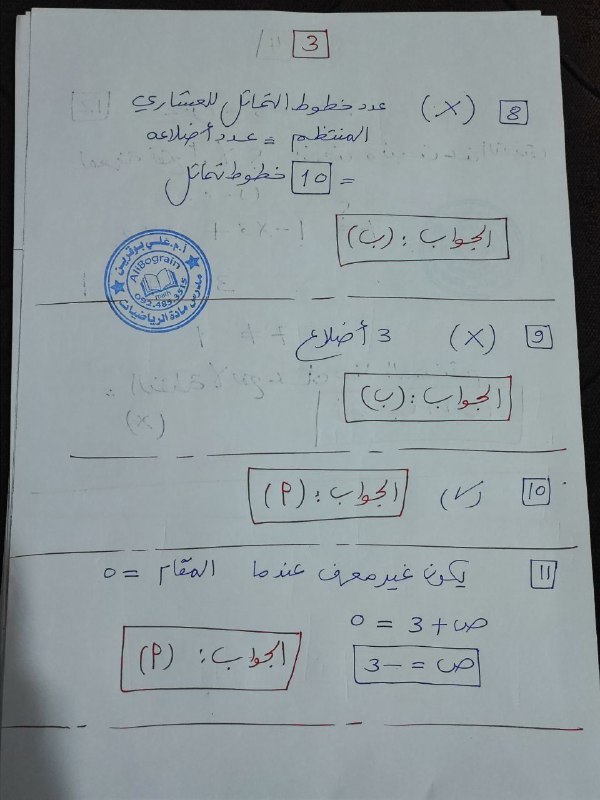 3
8 (X) عدد خطوط التماثل للعشاري
المنتظم = عدد أضلاعه
= 10 خطوط تماثل
الجواب : (ب)
أ.م. علي بوقرين
AliBograin
math
095.485.3515
مدرس مادة الرياضيات
9 (X) 3 أضلاع
الجواب : (ب)
10 (✓) الجواب : (أ)
11 يكون غير معرف عندما المقام = 0
ص + 3 = 0
ص = -3
الجواب : (أ)